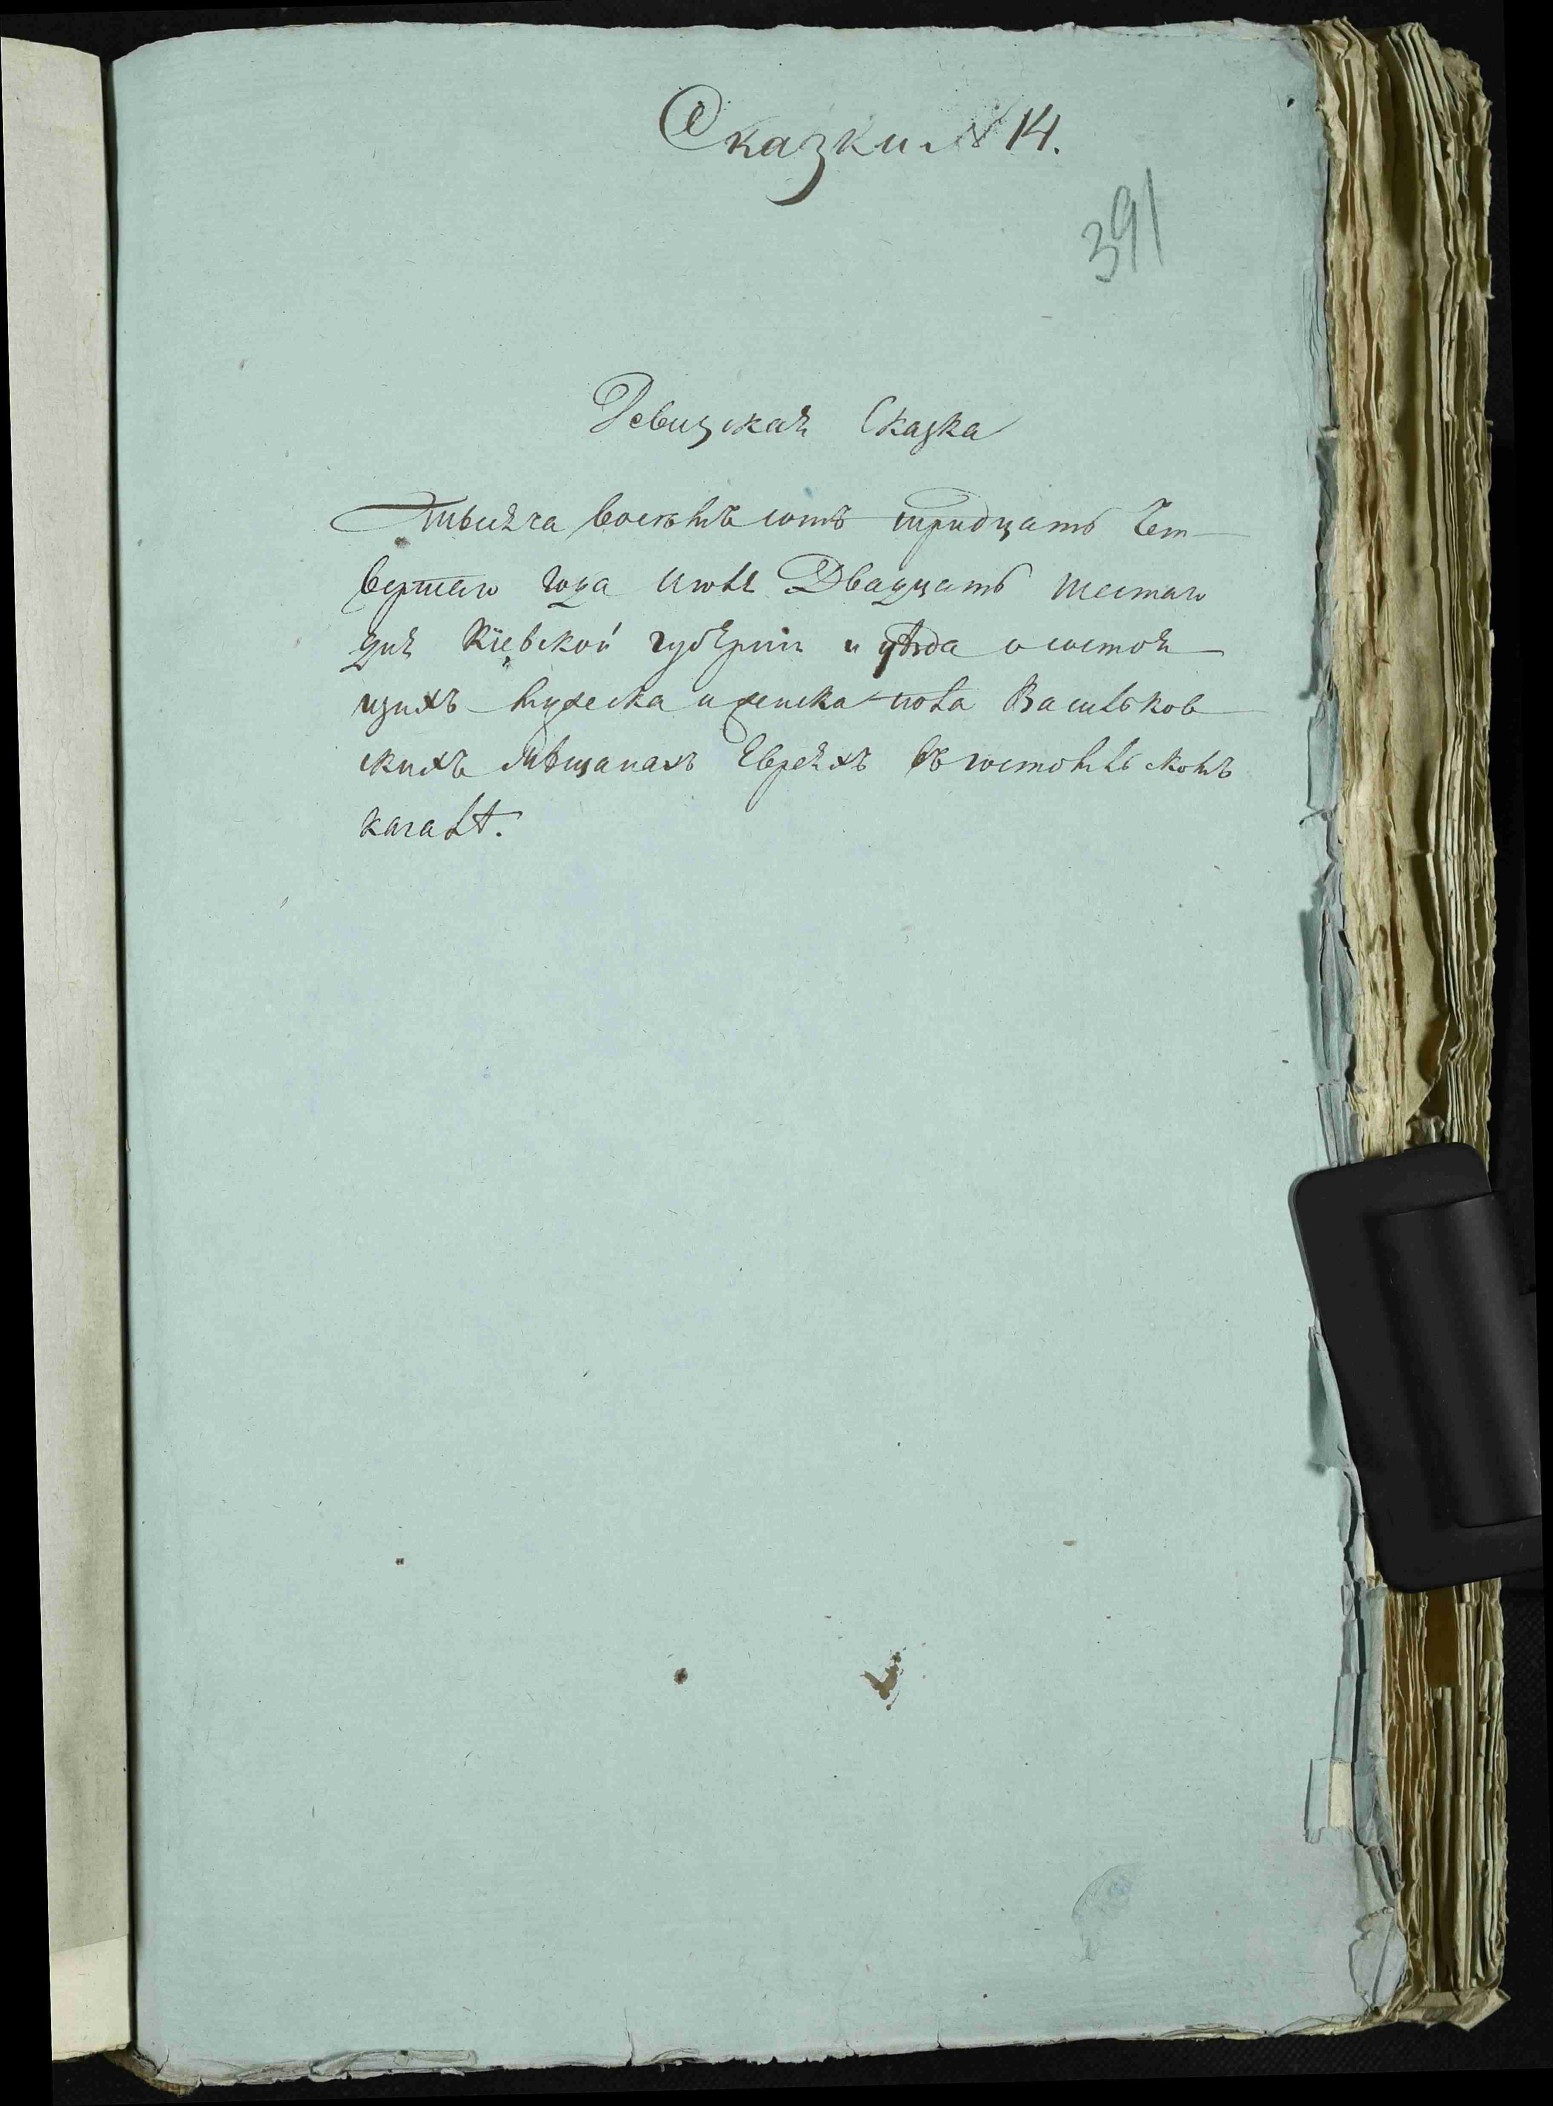 Сказки № 14.
391
Ревизская Сказка
Тысяча восемъ сотъ тридцать Чет-
вертаго года Июля Двадцать шестаго
дня Кіевской губерніи и уѣзда о состоя
щихъ мужеска и женска пола Васильков
скихъ мѣщанахъ Евреяхъ въ гостомльскомъ
кагалѣ.